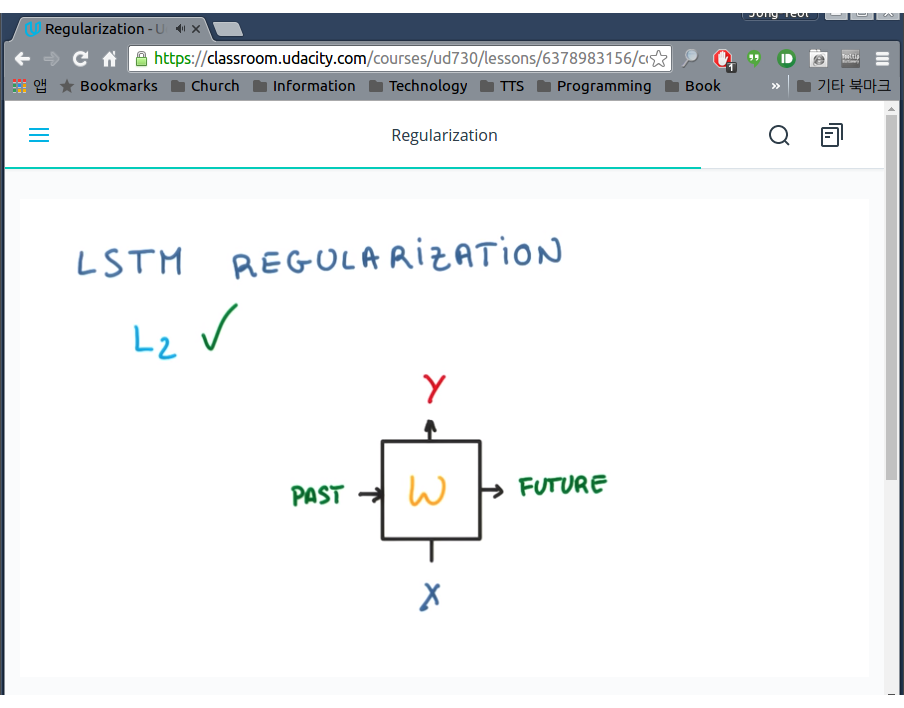 Regularization - U
https://classroom.udacity.com/courses/ud730/lessons/6378983156/c
1
앱 Bookmarks Church Information Technology TTS Programming Book » 기타 북마크
Regularization
LSTM REGULARIZATION
L2 ✓
Y
PAST → W → FUTURE
X